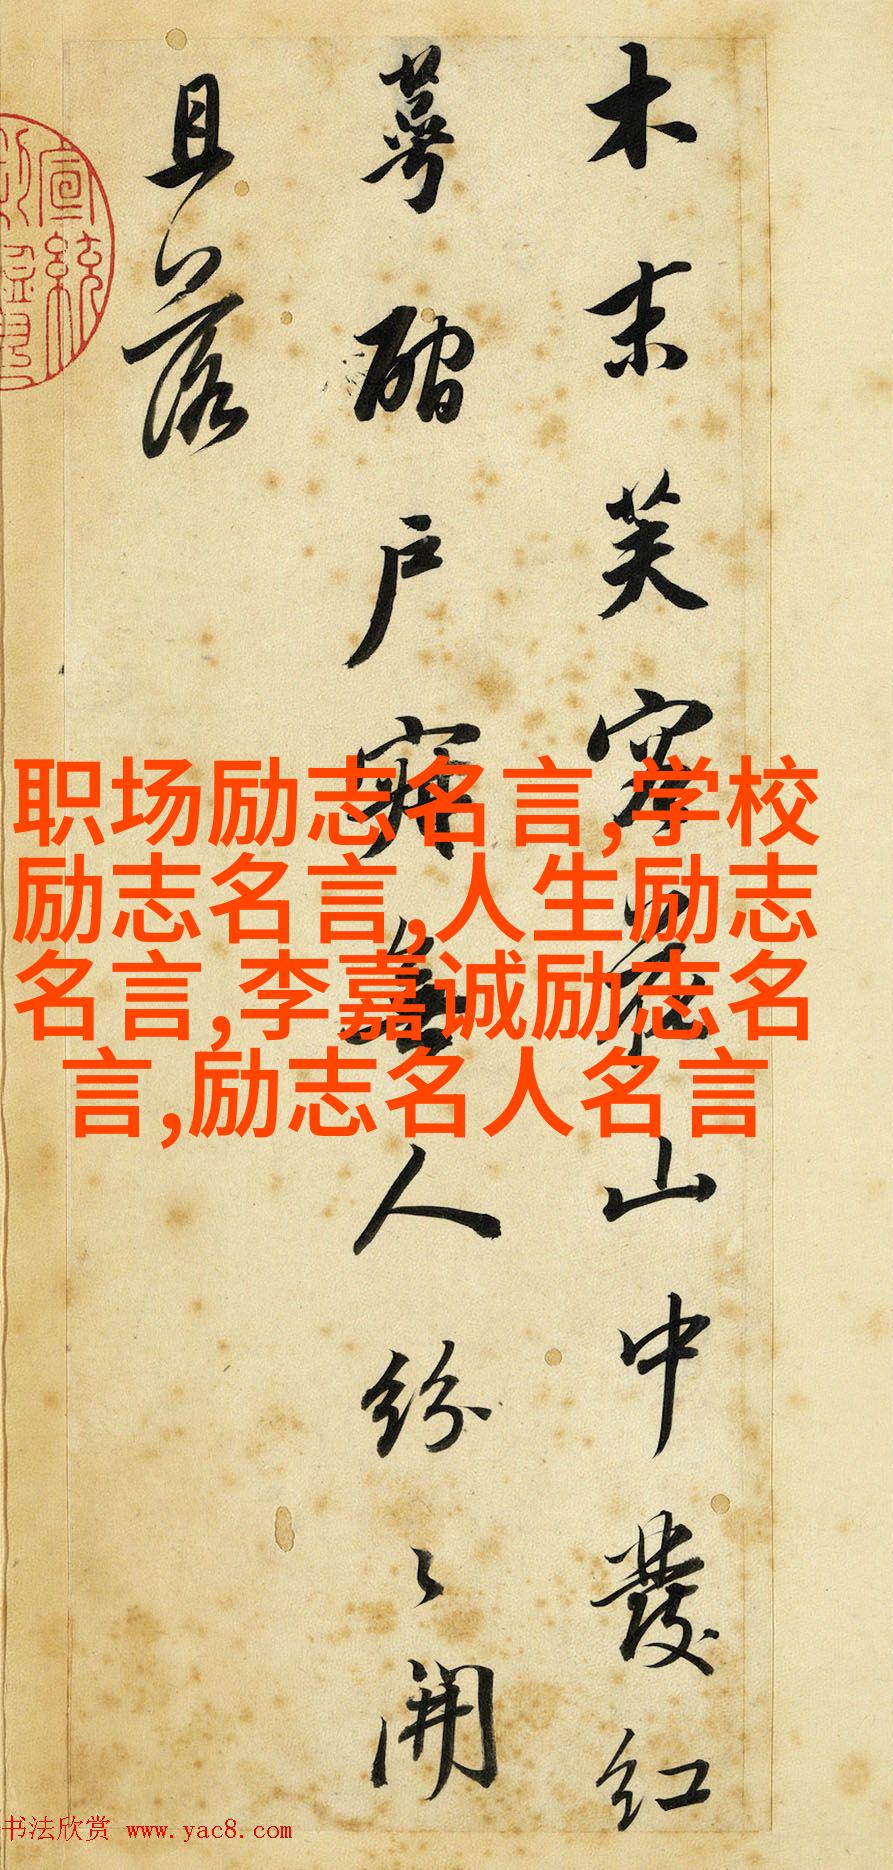 木末芙蓉花山中發紅
蕚磵戶寂無人紛々開
且落
宣統
职场励志名言,学校
励志名言,人生励志
名言,李嘉诚励志名
言,励志名人名言
书法欣赏 www.yac8.com